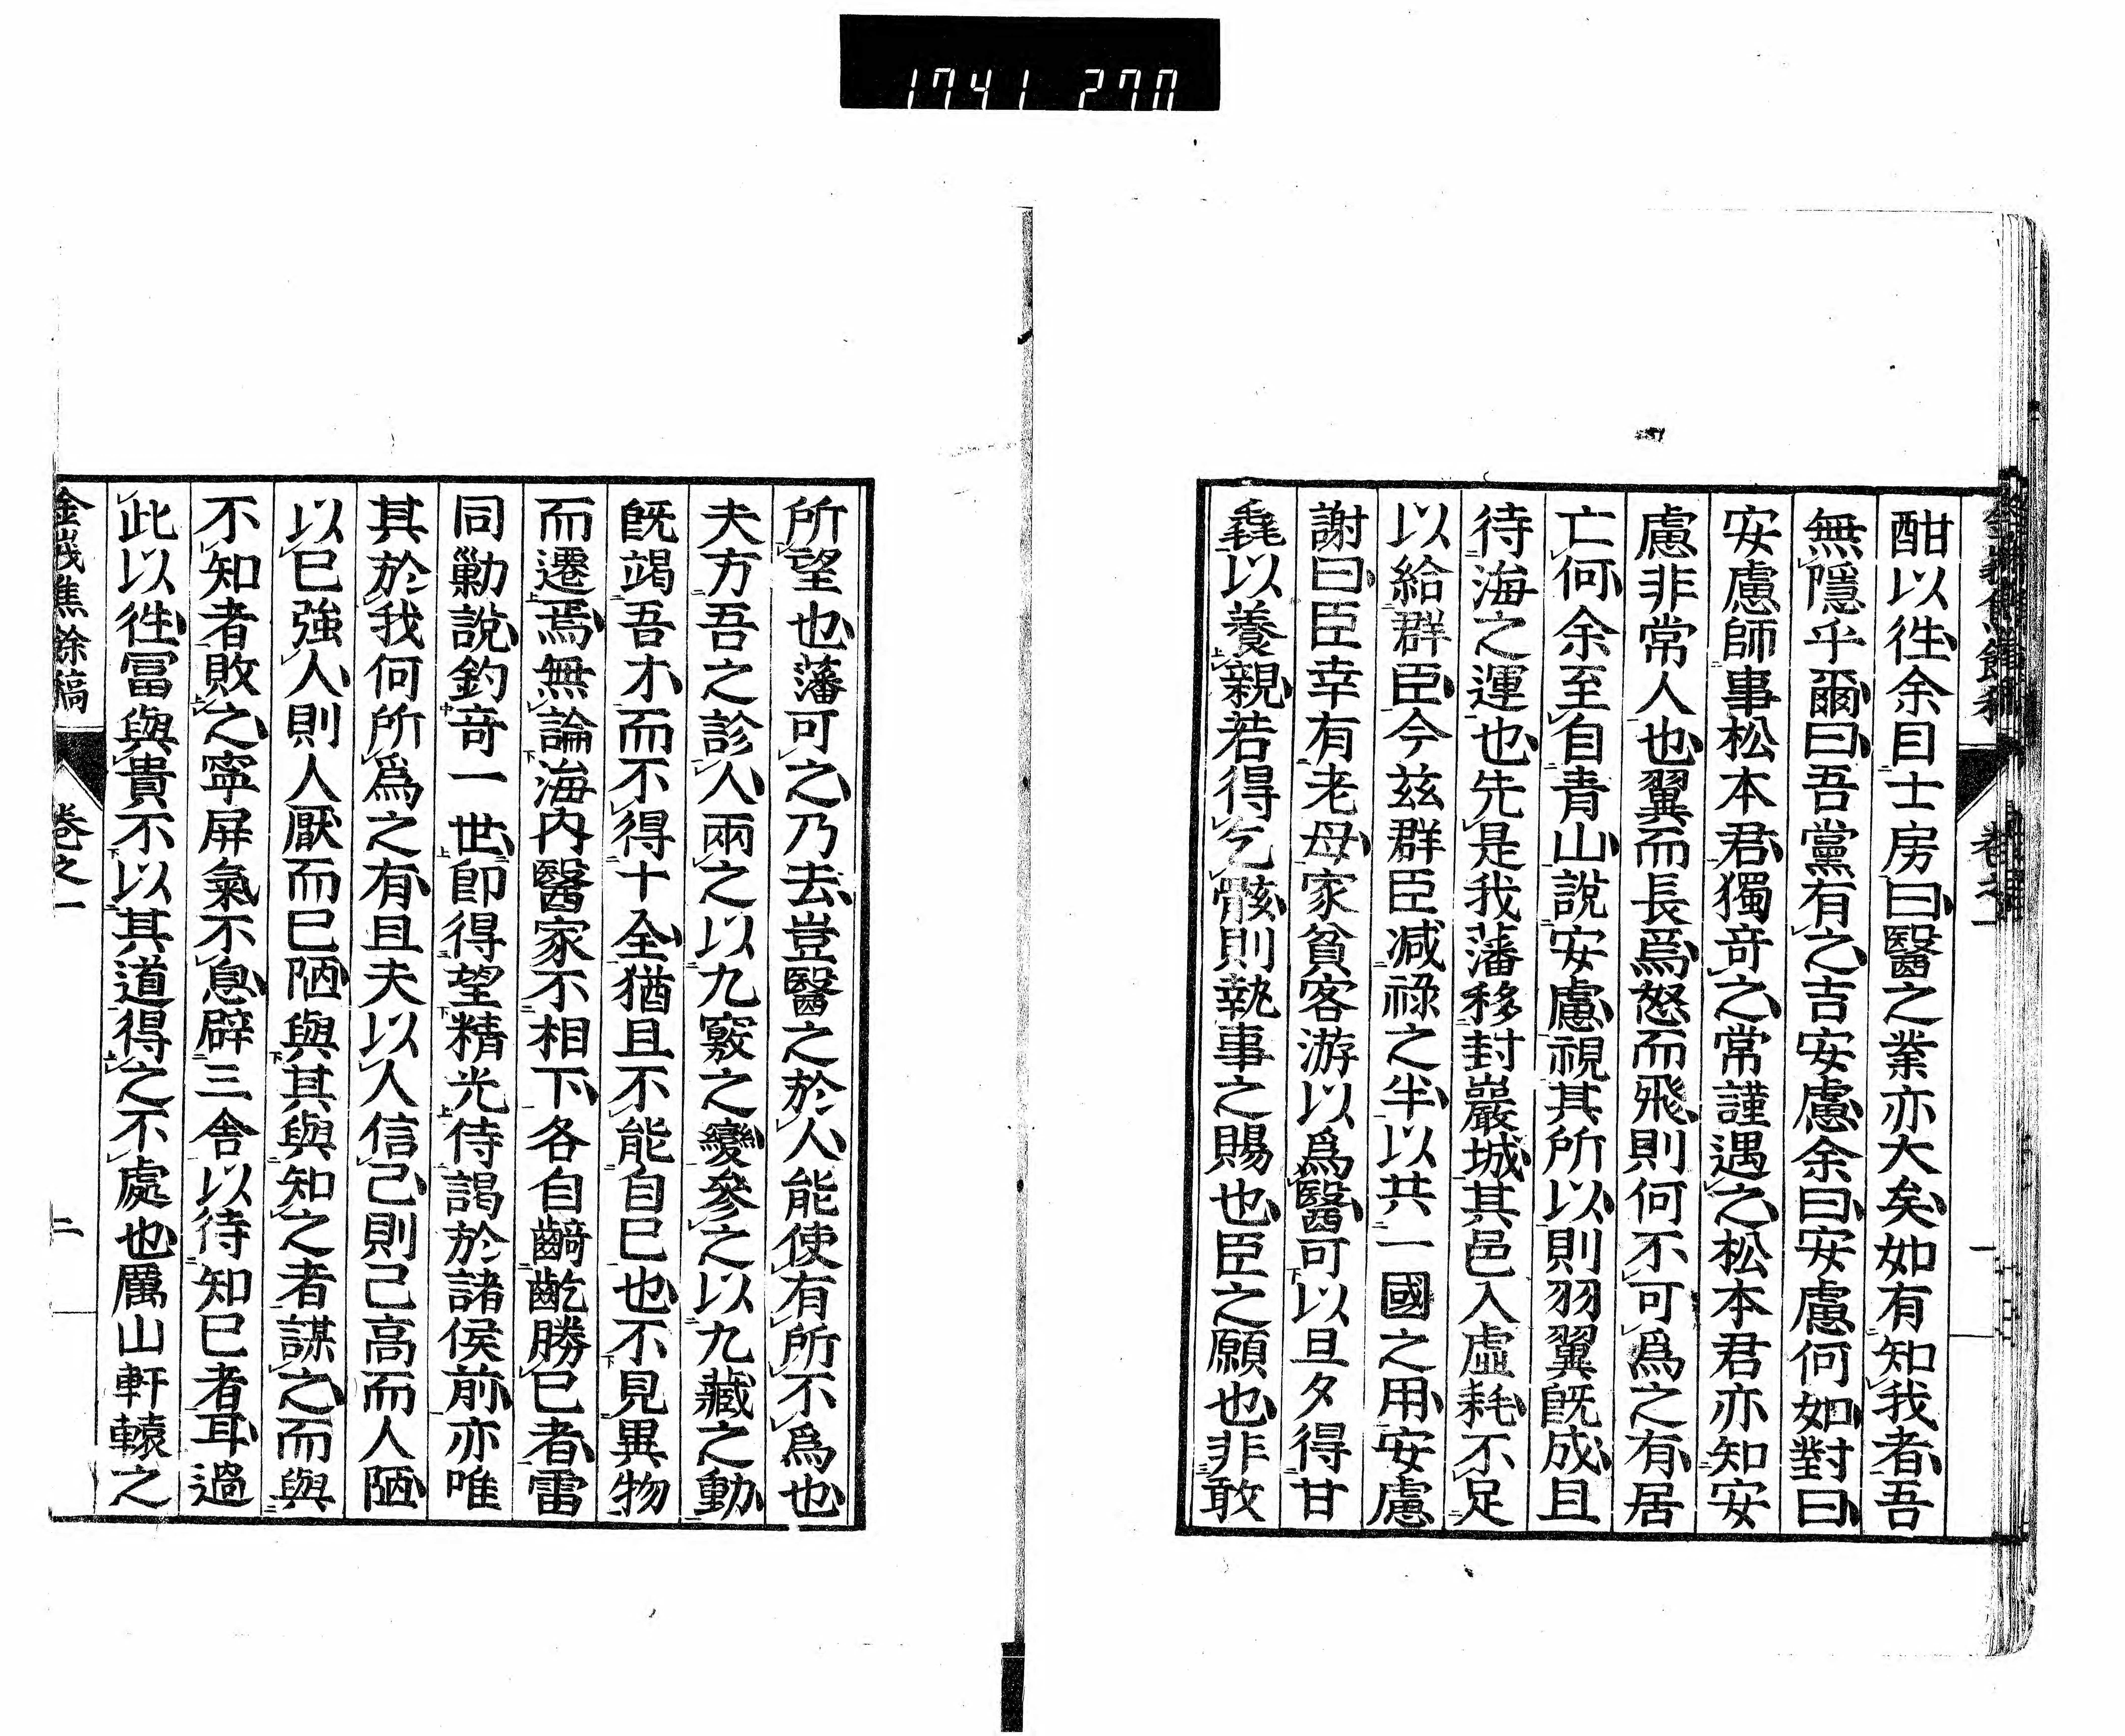 1741 270
酣以徃余目士房曰醫之業亦大矣如有知我者吾
無隱乎爾曰吾黨有之吉安慮余曰安慮何如對曰
安慮師事松本君獨竒之常謹遇之松本君亦知安
慮非常人也翼而長焉怒而飛則何不可爲之有居
亡何余至自青山說安慮視其所以則羽翼旣成且
待海之運也先是我藩移封巖城其邑入虛耗不足
以給群臣今兹群臣减祿之半以共一國之用安慮
謝曰臣幸有老母家貧客游以爲醫可以旦夕得甘
毳以養親若得乞骸則執事之賜也臣之願也非敢
所望也藩可之乃去豈醫之於人能使有所不爲也
夫方吾之診人兩之以九竅之變參之以九藏之動
旣竭吾才而不得十全猶且不能自已也不見異物
而遷焉無論海內醫家不相下各自齮齕勝已者雷
同勦說釣竒一世卽得望精光侍謁於諸侯前亦唯
其於我何所爲之有且夫以人信己則己高而人陋
以已強人則人厭而已陋與其與知之者謀之而與
不知者敗之寧屏氣不息辟三舍以待知已者耳過
此以徃冨與貴不以其道得之不處也厲山軒轅之
金峩焦餘稿 卷之一 二